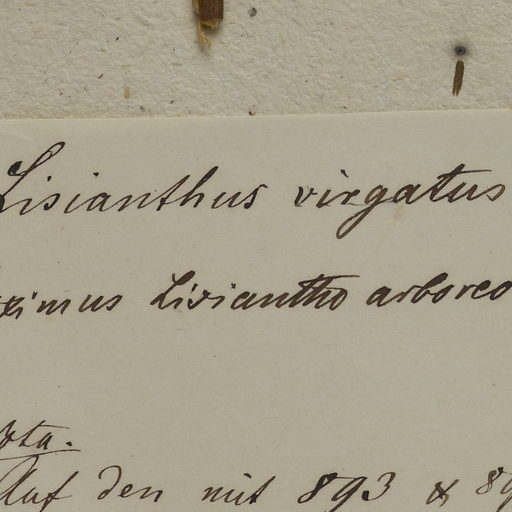 Lisianthus virgatus
ximus Lisiantho arboreo
ota.
Auf den mit 893 & 89